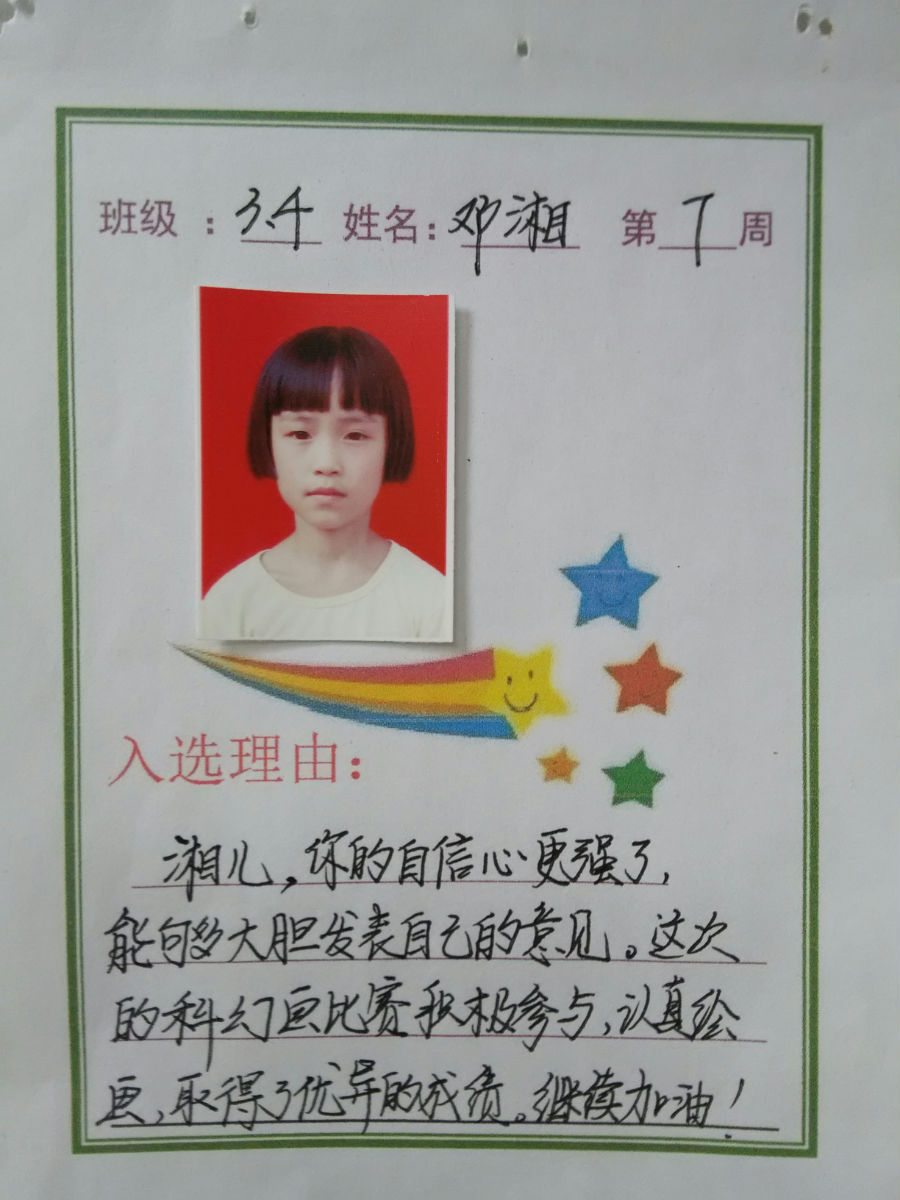 班级：3.4 姓名：邓湘 第7周
入选理由：
湘儿，你的自信心更强了，
能够大胆发表自己的意见。这次
的科幻画比赛积极参与，认真绘
画，取得了优异的成绩。继续加油！